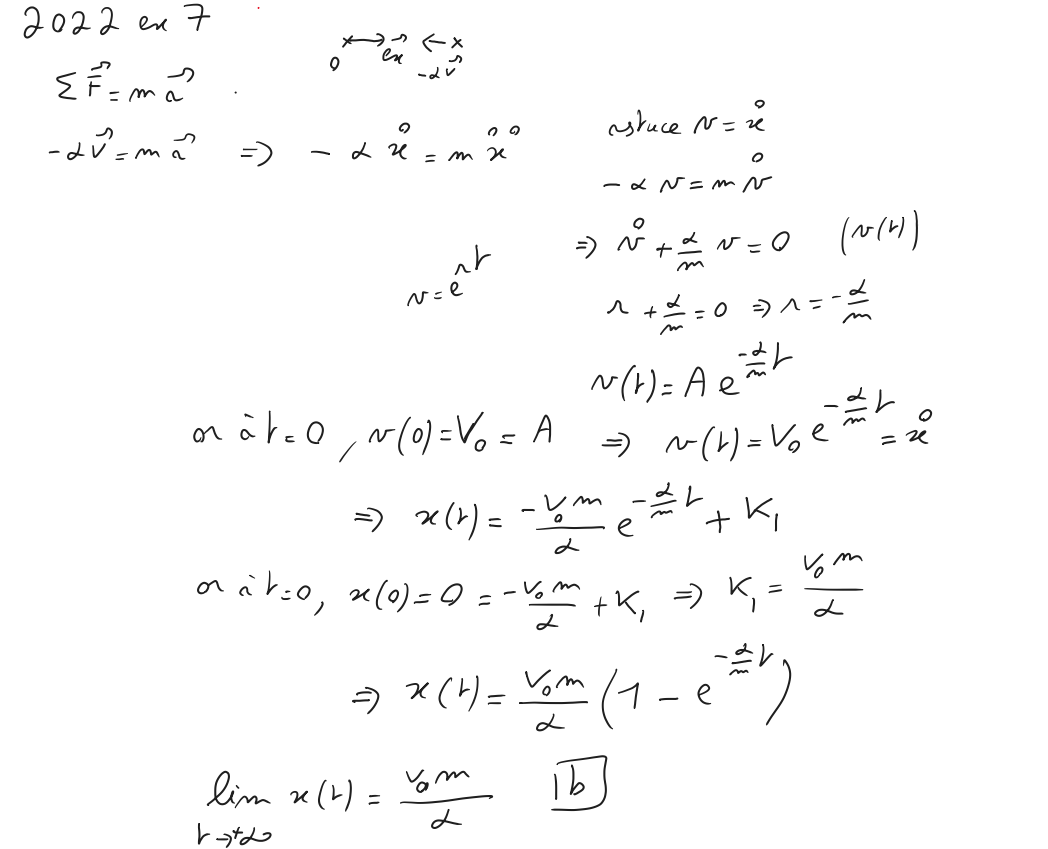 2022 ex 7
0 x→ e⃗x ←x -αv⃗
∑F⃗ = m a⃗
-αv⃗ = m a⃗ ⇒ - α ẋ = m ẍ
astuce v = ẋ
- α v = m v̇
⇒ v̇ + α/m v = 0 (v(t))
v = e^{rt}
r + α/m = 0 ⇒ r = -α/m
v(t) = A e^{-α/m t}
or à t=0, v(0) = V₀ = A ⇒ v(t) = V₀ e^{-α/m t} = ẋ
⇒ x(t) = -V₀m/α e^{-α/m t} + K₁
or à t=0, x(0) = 0 = -V₀m/α + K₁ ⇒ K₁ = V₀m/α
⇒ x(t) = V₀m/α (1 - e^{-α/m t})
lim x(t) = V₀m/α 1b
t→+∞